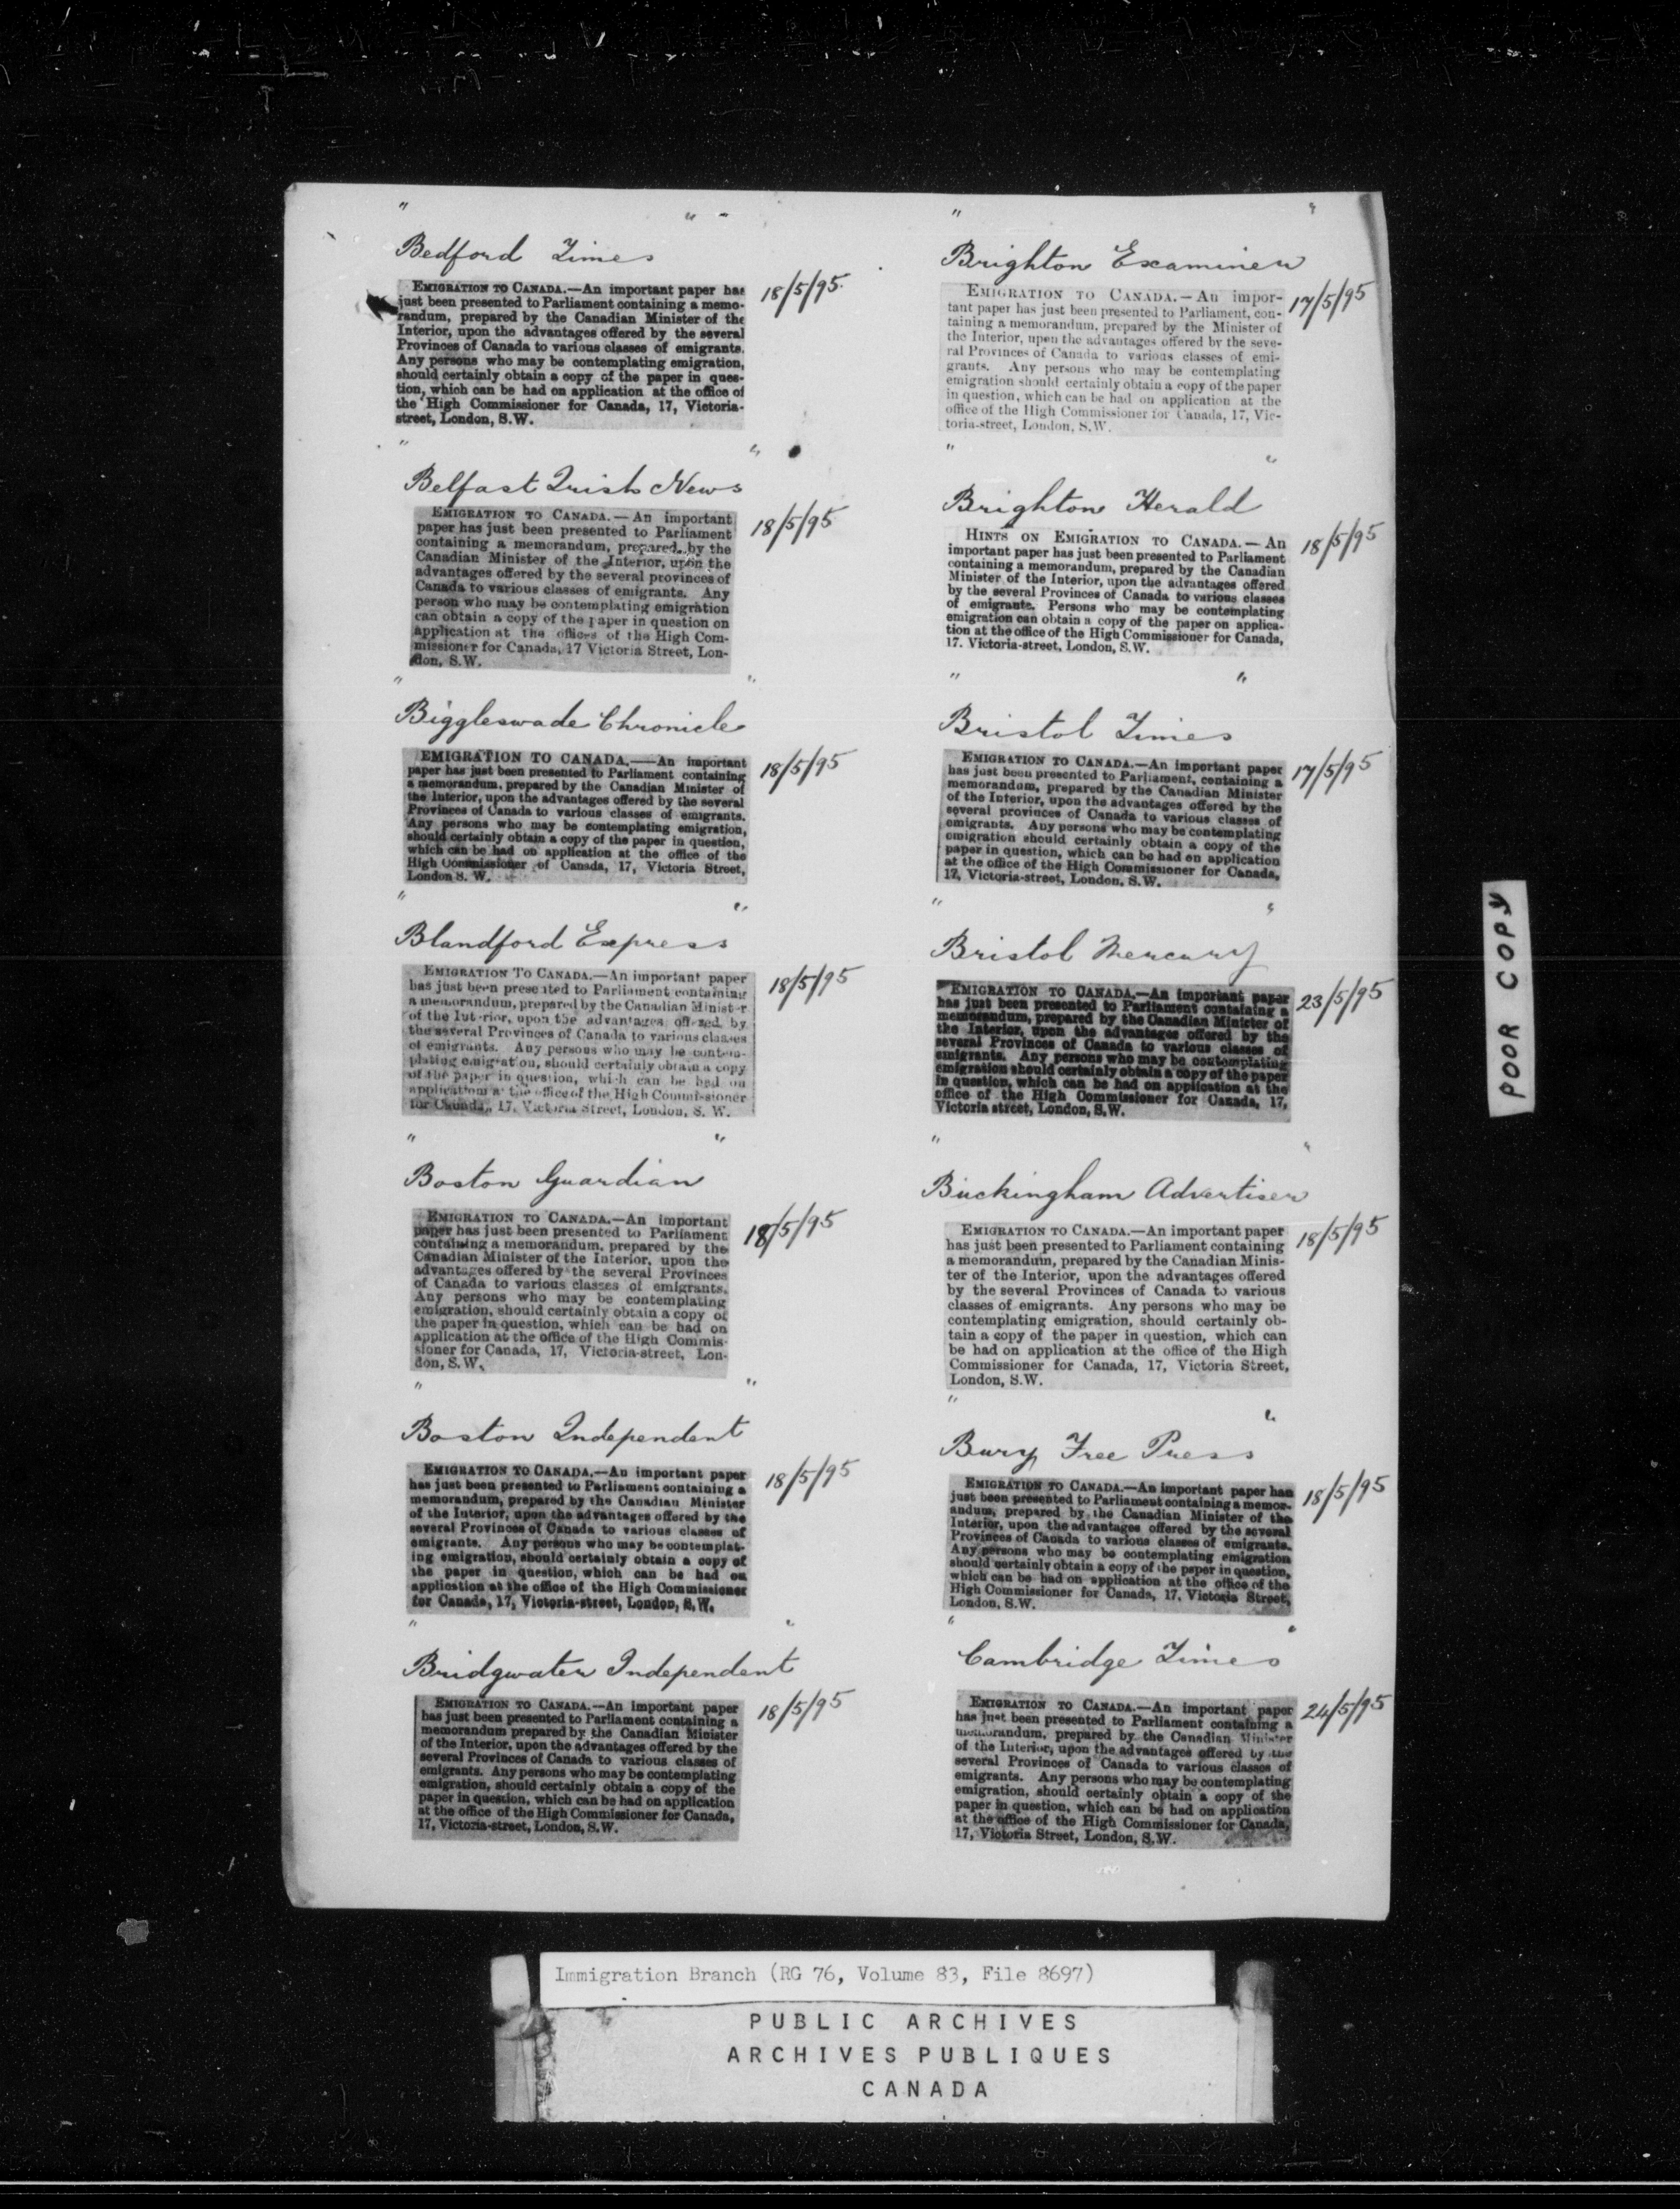 " " "
Bedford Times
EMIGRATION TO CANADA.—An important paper has
just been presented to Parliament containing a memo-
randum, prepared by the Canadian Minister of the
Interior, upon the advantages offered by the several
Provinces of Canada to various classes of emigrants.
Any persons who may be contemplating emigration,
should certainly obtain a copy of the paper in ques-
tion, which can be had on application at the office of
the High Commissioner for Canada, 17, Victoria-
street, London, S.W.
18/5/95
" "
Belfast Irish News
EMIGRATION TO CANADA.—An important
paper has just been presented to Parliament
containing a memorandum, prepared by the
Canadian Minister of the Interior, upon the
advantages offered by the several provinces of
Canada to various classes of emigrants. Any
person who may be contemplating emigration
can obtain a copy of the paper in question on
application at the offices of the High Com-
missioner for Canada, 17 Victoria Street, Lon-
don, S.W.
18/5/95
" "
Biggleswade Chronicle
EMIGRATION TO CANADA.——An important
paper has just been presented to Parliament containing
a memorandum, prepared by the Canadian Minister of
the Interior, upon the advantages offered by the several
Provinces of Canada to various classes of emigrants.
Any persons who may be contemplating emigration,
should certainly obtain a copy of the paper in question,
which can be had on application at the office of the
High Commissioner of Canada, 17, Victoria Street,
London S. W.
18/5/95
" "
Blandford Express
EMIGRATION TO CANADA.—An important paper
has just been presented to Parliament containing
a memorandum, prepared by the Canadian Minister
of the Interior, upon the advantages offered by
the several Provinces of Canada to various classes
of emigrants. Any persons who may be contem-
plating emigration, should certainly obtain a copy
of the paper in question, which can be had on
application at the office of the High Commissioner
for Canada, 17, Victoria Street, London, S. W.
18/5/95
" "
Boston Guardian
EMIGRATION TO CANADA.—An important
paper has just been presented to Parliament
containing a memorandum, prepared by the
Canadian Minister of the Interior, upon the
advantages offered by the several Provinces
of Canada to various classes of emigrants.
Any persons who may be contemplating
emigration, should certainly obtain a copy of
the paper in question, which can be had on
application at the office of the High Commis-
sioner for Canada, 17, Victoria-street, Lon-
don, S.W.
18/5/95
" "
Boston Independent
EMIGRATION TO CANADA.—An important paper
has just been presented to Parliament containing a
memorandum, prepared by the Canadian Minister
of the Interior, upon the advantages offered by the
several Provinces of Canada to various classes of
emigrants. Any persons who may be contemplat-
ing emigration, should certainly obtain a copy of
the paper in question, which can be had on
application at the office of the High Commissioner
for Canada, 17, Victoria-street, London, S.W.
18/5/95
" "
Bridgwater Independent
EMIGRATION TO CANADA.—An important paper
has just been presented to Parliament containing a
memorandum prepared by the Canadian Minister
of the Interior, upon the advantages offered by the
several Provinces of Canada to various classes of
emigrants. Any persons who may be contemplating
emigration, should certainly obtain a copy of the
paper in question, which can be had on application
at the office of the High Commissioner for Canada,
17, Victoria-street, London, S.W.
18/5/95
" "
Brighton Examiner
EMIGRATION TO CANADA.—An impor-
tant paper has just been presented to Parliament, con-
taining a memorandum, prepared by the Minister of
the Interior, upon the advantages offered by the seve-
ral Provinces of Canada to various classes of emi-
grants. Any persons who may be contemplating
emigration should certainly obtain a copy of the paper
in question, which can be had on application at the
office of the High Commissioner for Canada, 17, Vic-
toria-street, London, S.W.
17/5/95
" "
Brighton Herald
HINTS ON EMIGRATION TO CANADA.—An
important paper has just been presented to Parliament
containing a memorandum, prepared by the Canadian
Minister of the Interior, upon the advantages offered
by the several Provinces of Canada to various classes
of emigrants. Persons who may be contemplating
emigration can obtain a copy of the paper on applica-
tion at the office of the High Commissioner for Canada,
17. Victoria-street, London, S.W.
18/5/95
" "
Bristol Times
EMIGRATION TO CANADA.—An important paper
has just been presented to Parliament, containing a
memorandum, prepared by the Canadian Minister
of the Interior, upon the advantages offered by the
several provinces of Canada to various classes of
emigrants. Any persons who may be contemplating
emigration should certainly obtain a copy of the
paper in question, which can be had on application
at the office of the High Commissioner for Canada,
17, Victoria-street, London, S.W.
17/5/95
" "
Bristol Mercury
EMIGRATION TO CANADA.—An important paper
has just been presented to Parliament containing a
memorandum, prepared by the Canadian Minister of
the Interior, upon the advantages offered by the
several Provinces of Canada to various classes of
emigrants. Any persons who may be contemplating
emigration should certainly obtain a copy of the paper
in question, which can be had on application at the
office of the High Commissioner for Canada, 17,
Victoria street, London, S.W.
23/5/95
" "
Buckingham Advertiser
EMIGRATION TO CANADA.—An important paper
has just been presented to Parliament containing
a memorandum, prepared by the Canadian Minis-
ter of the Interior, upon the advantages offered
by the several Provinces of Canada to various
classes of emigrants. Any persons who may be
contemplating emigration, should certainly ob-
tain a copy of the paper in question, which can
be had on application at the office of the High
Commissioner for Canada, 17, Victoria Street,
London, S.W.
18/5/95
" "
Bury Free Press
EMIGRATION TO CANADA.—An important paper has
just been presented to Parliament containing a memor-
andum, prepared by the Canadian Minister of the
Interior, upon the advantages offered by the several
Provinces of Canada to various classes of emigrants.
Any persons who may be contemplating emigration
should certainly obtain a copy of the paper in question,
which can be had on application at the office of the
High Commissioner for Canada, 17, Victoria Street,
London, S.W.
18/5/95
" "
Cambridge Times
EMIGRATION TO CANADA.—An important paper
has just been presented to Parliament containing a
memorandum, prepared by the Canadian Minister
of the Interior, upon the advantages offered by the
several Provinces of Canada to various classes of
emigrants. Any persons who may be contemplating
emigration, should certainly obtain a copy of the
paper in question, which can be had on application
at the office of the High Commissioner for Canada,
17, Victoria Street, London, S.W.
24/5/95
POOR COPY
Immigration Branch (RG 76, Volume 83, File 8697)
PUBLIC ARCHIVES
ARCHIVES PUBLIQUES
CANADA